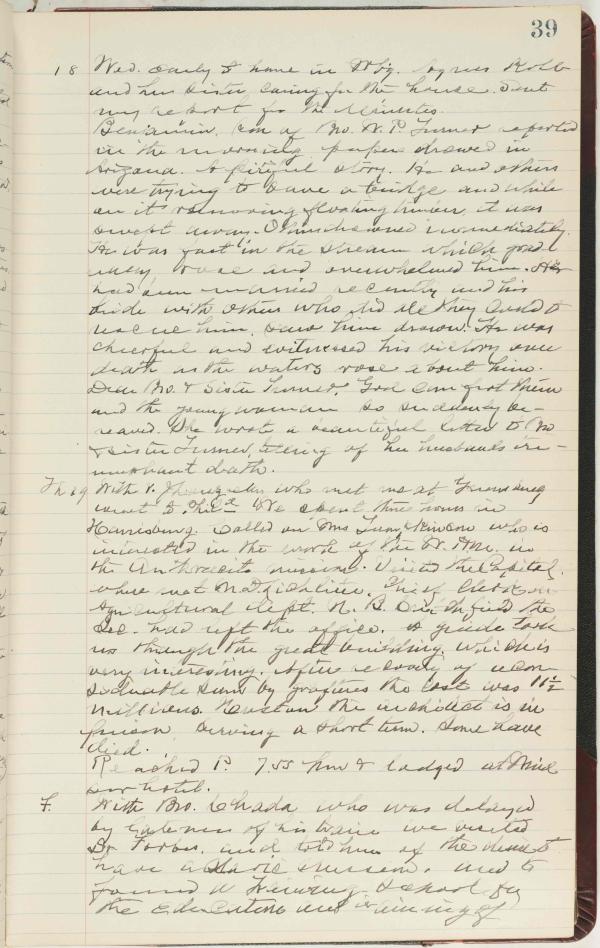 39
18 Wed. Early to home in Wbg. Agnes Kolb
and her sister, caring for the house. Sent
my report for the Minutes.
Benjamin, son of Bro. W. P. Turner reported
in the morning paper drowned in
Arizona. A pitiful story. He and others
were trying to save a bridge and while
on it removing floating timber, it was
swept away. drowned immediately.
He was fast in the stream which grad-
ually rose and overwhelmed him. He
had been married recently and his
bride with others who did all they could to
rescue him, saw him drown. He was
cheerful and witnessed his victory over
death as the waters rose about him.
Dear Bro. & Sister Turner, God comfort them
and the young woman so suddenly be-
reaved. She wrote a beautiful letter to Bro
& Sister Turner, telling of her husbands tri-
umphant death.
Th 19 With V. who met me at Greensburg
went to Phila. We spent three hours in
Harrisburg. Called on Mrs who is
interested in the work of the W. H. M. in
the Anthracite mission. Visited the Capitol,
where met Chief Clerk in
Agricultural Dept. N. B. Critchfield the
Sec. had left the office. A guide took
us through the great building, which is
very interesting. After recovery of a con-
siderable sum by grafters the cost was 11½
millions. Huston the architect is in
prison, serving a short term. Some have
died.
Reached P. 7.55 P.M. & lodged at Wind-
sor hotel.
F. With Bro. Chada who was delayed
by lateness of his train we visited
Dr. Forbes, and told him of the desire to
have a Slavic mission, and to
found a Training School for
the education and training of